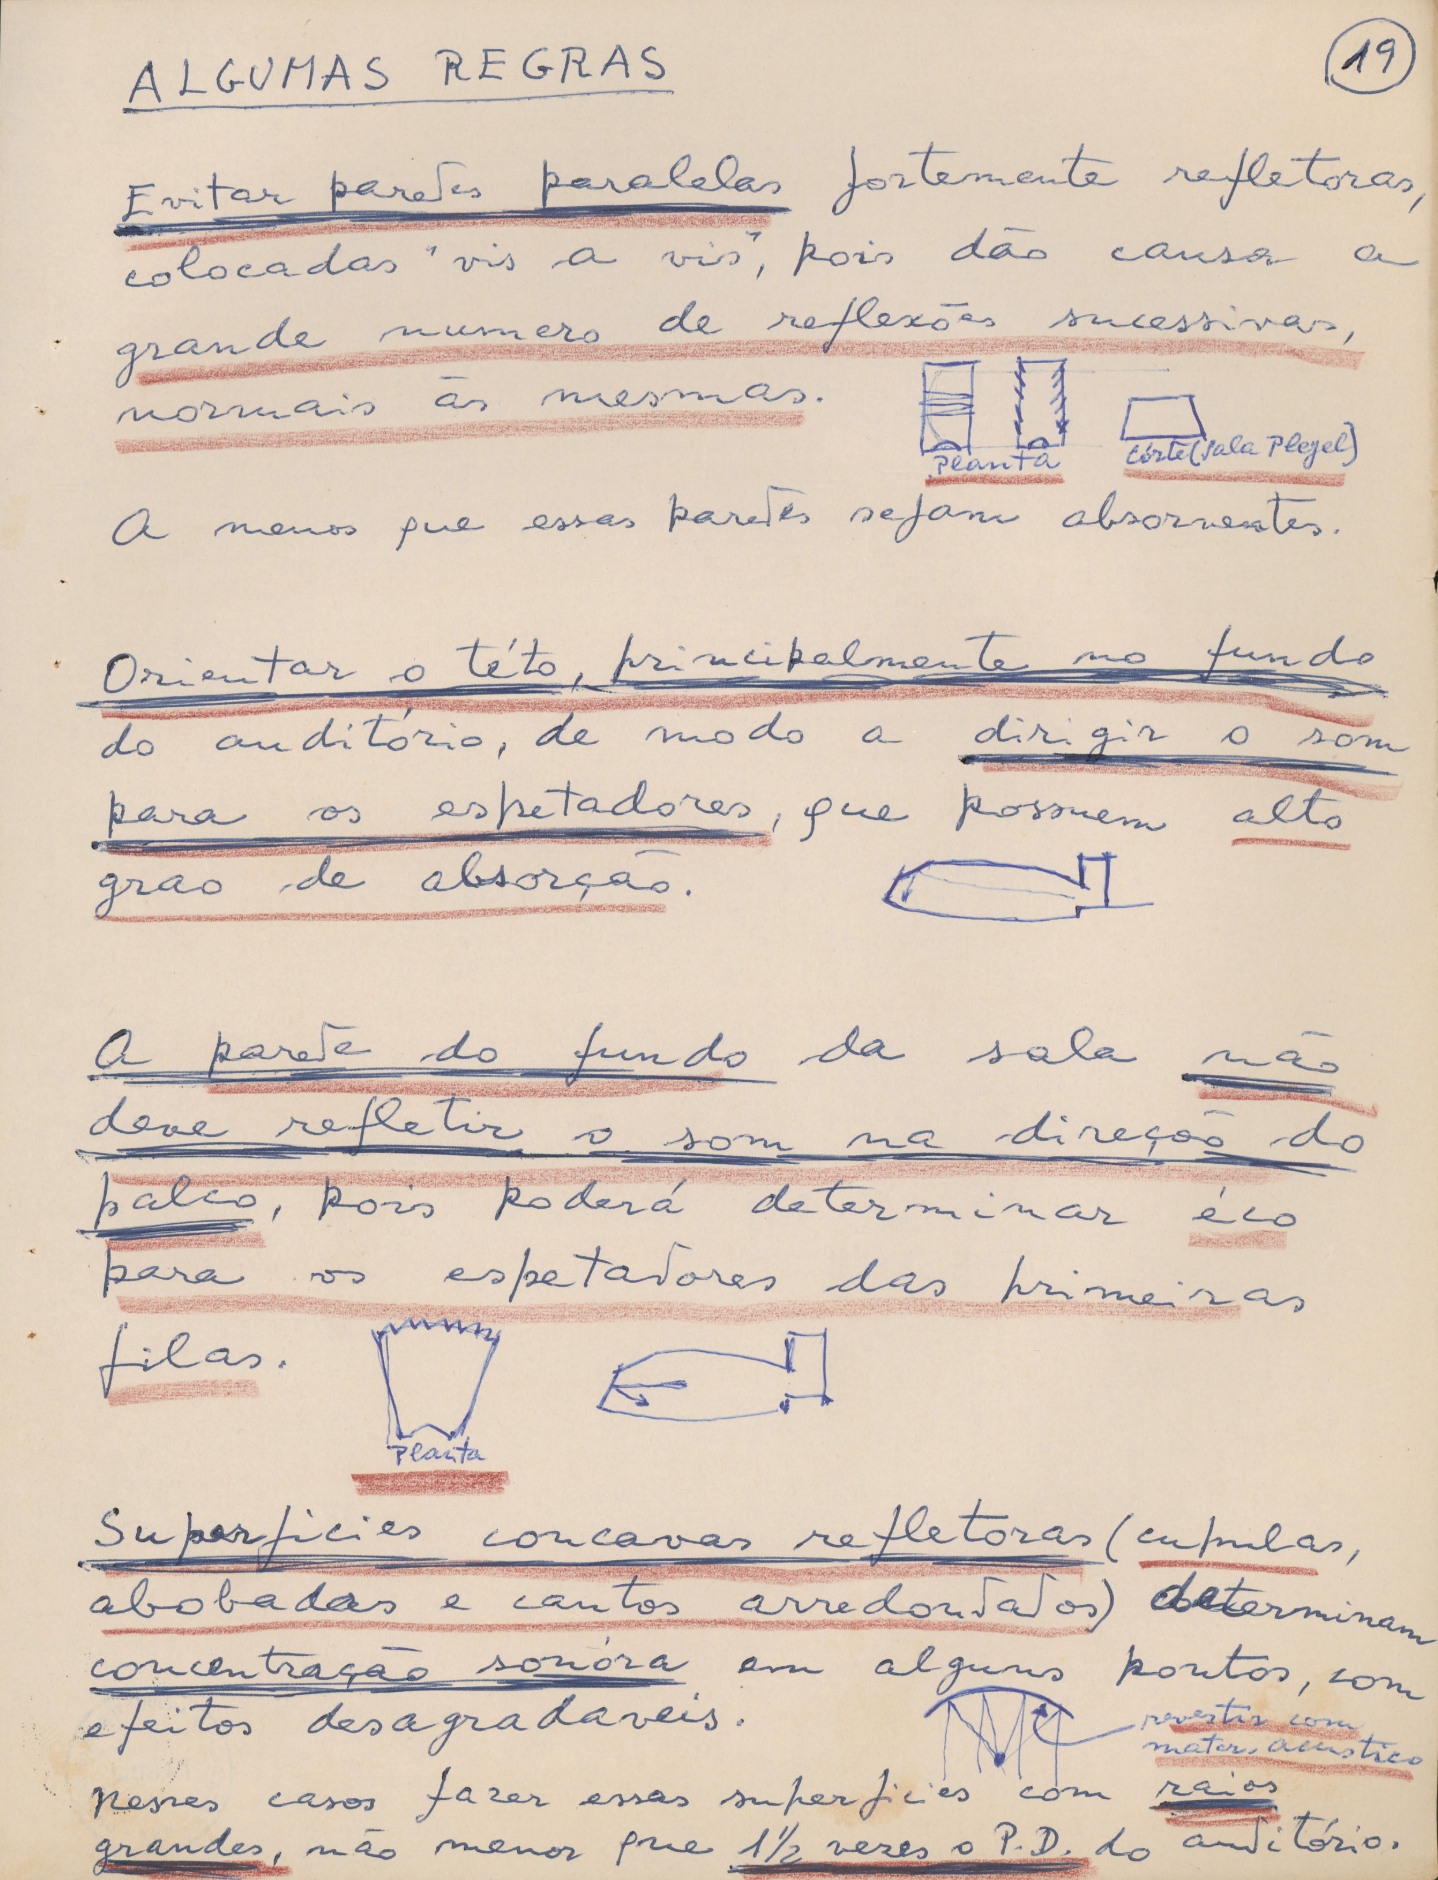 ALGUMAS REGRAS
19
Evitar paredes paralelas fortemente refletoras,
colocadas "vis a vis", pois dão causa a
grande numero de reflexões sucessivas,
normais às mesmas.
Planta
córte (Sala Pleyel)
A menos que essas paredes sejam absorventes.
Orientar o této, principalmente no fundo
do auditório, de modo a dirigir o som
para os espetadores, que possuem alto
grao de absorção.
A parede do fundo da sala não
deve refletir o som na direção do
palco, pois poderá determinar éco
para os espetadores das primeiras
filas.
Planta
Superficies concavas refletoras (cupulas,
abobadas e cantos arredondados) determinam
concentração sonóra em alguns pontos, com
efeitos desagradaveis.
revestir com
mater. acustico
Nesses casos fazer essas superficies com raios
grandes, não menor que 1½ vezes o P.D. do auditório.